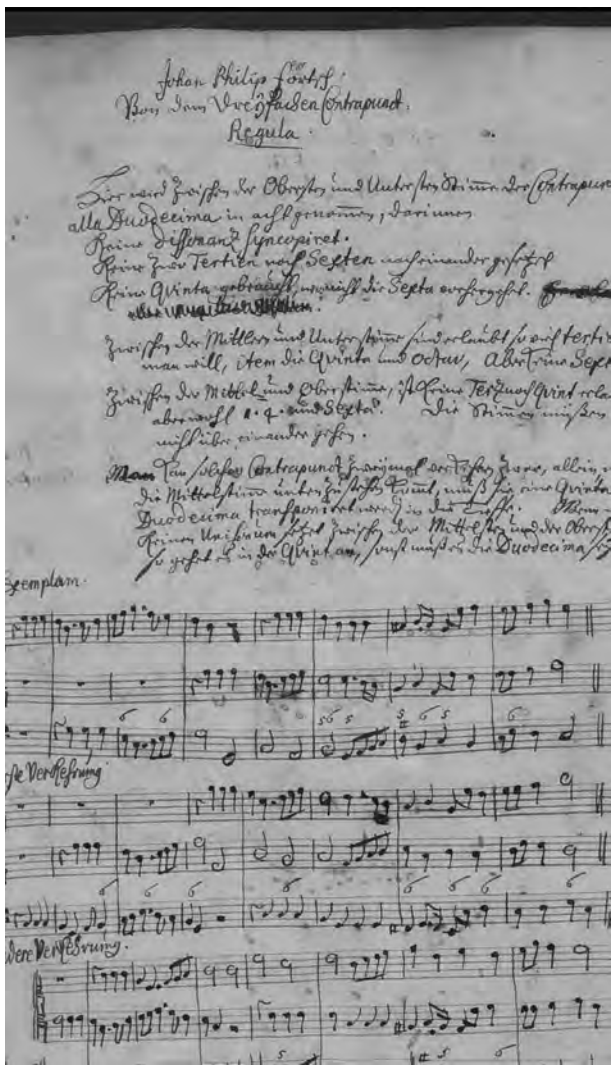 Johan Philip Förtsch.
Von dem Dreÿfachen Contrapunct.
Regula.
Hier wird zwischen der Obersten und Untersten Stimme der Contrapun
alla Duodecima in acht genommen, darinnen
Keine Dissonanz Syncopiret.
Keine zwo Tertien noch Sexten nach einander gesetzet
Keine Qvinta gebraucht, wo nicht die Sexta vorhergehet.
Zwischen der Mittlern und Unterstimme sind erlaubt so viel tertie
man will, item die Qvinta und octav, Aber keine Sext
Zwischen der Mittel und Oberstimme, ist keine Terz noch Qvint erla
aber wohl 8. 4. und Sexta. Die Stimmen müßen
nicht über einander gehen.
Man kan solchen Contrapunct zweÿmahl verkehren zwar, allein
die Mittelstimme unten zu stehen kommt, muß sie eine Qvinta
Duodecima transponiret werden in die
Keinen Unisonum setzet zwischen der Mittelsten und der Oberst
so gehet es in der Qvint an, sonst muß es die Duodecima seÿ
Exemplum.
ste Verkehrung
6 6 56 5 5 6 5 6
6 6 6 6 6 6 6 6
dere Verkehrung.
5 5 5